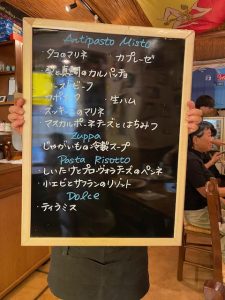 Antipasto Misto
・タコのマリネ カプレーゼ
真鯛のカルパッチョ
ローストビーフ
・生ハム
ズッキーニのマリネ
・マスカルポーネチーズとはちみつ
Zuppa
じゃがいもの冷製スープ
Pasta Risotto
・しいたけとプロヴォラチーズのペンネ
・小エビとサフランのリゾット
Dolce
・ティラミス